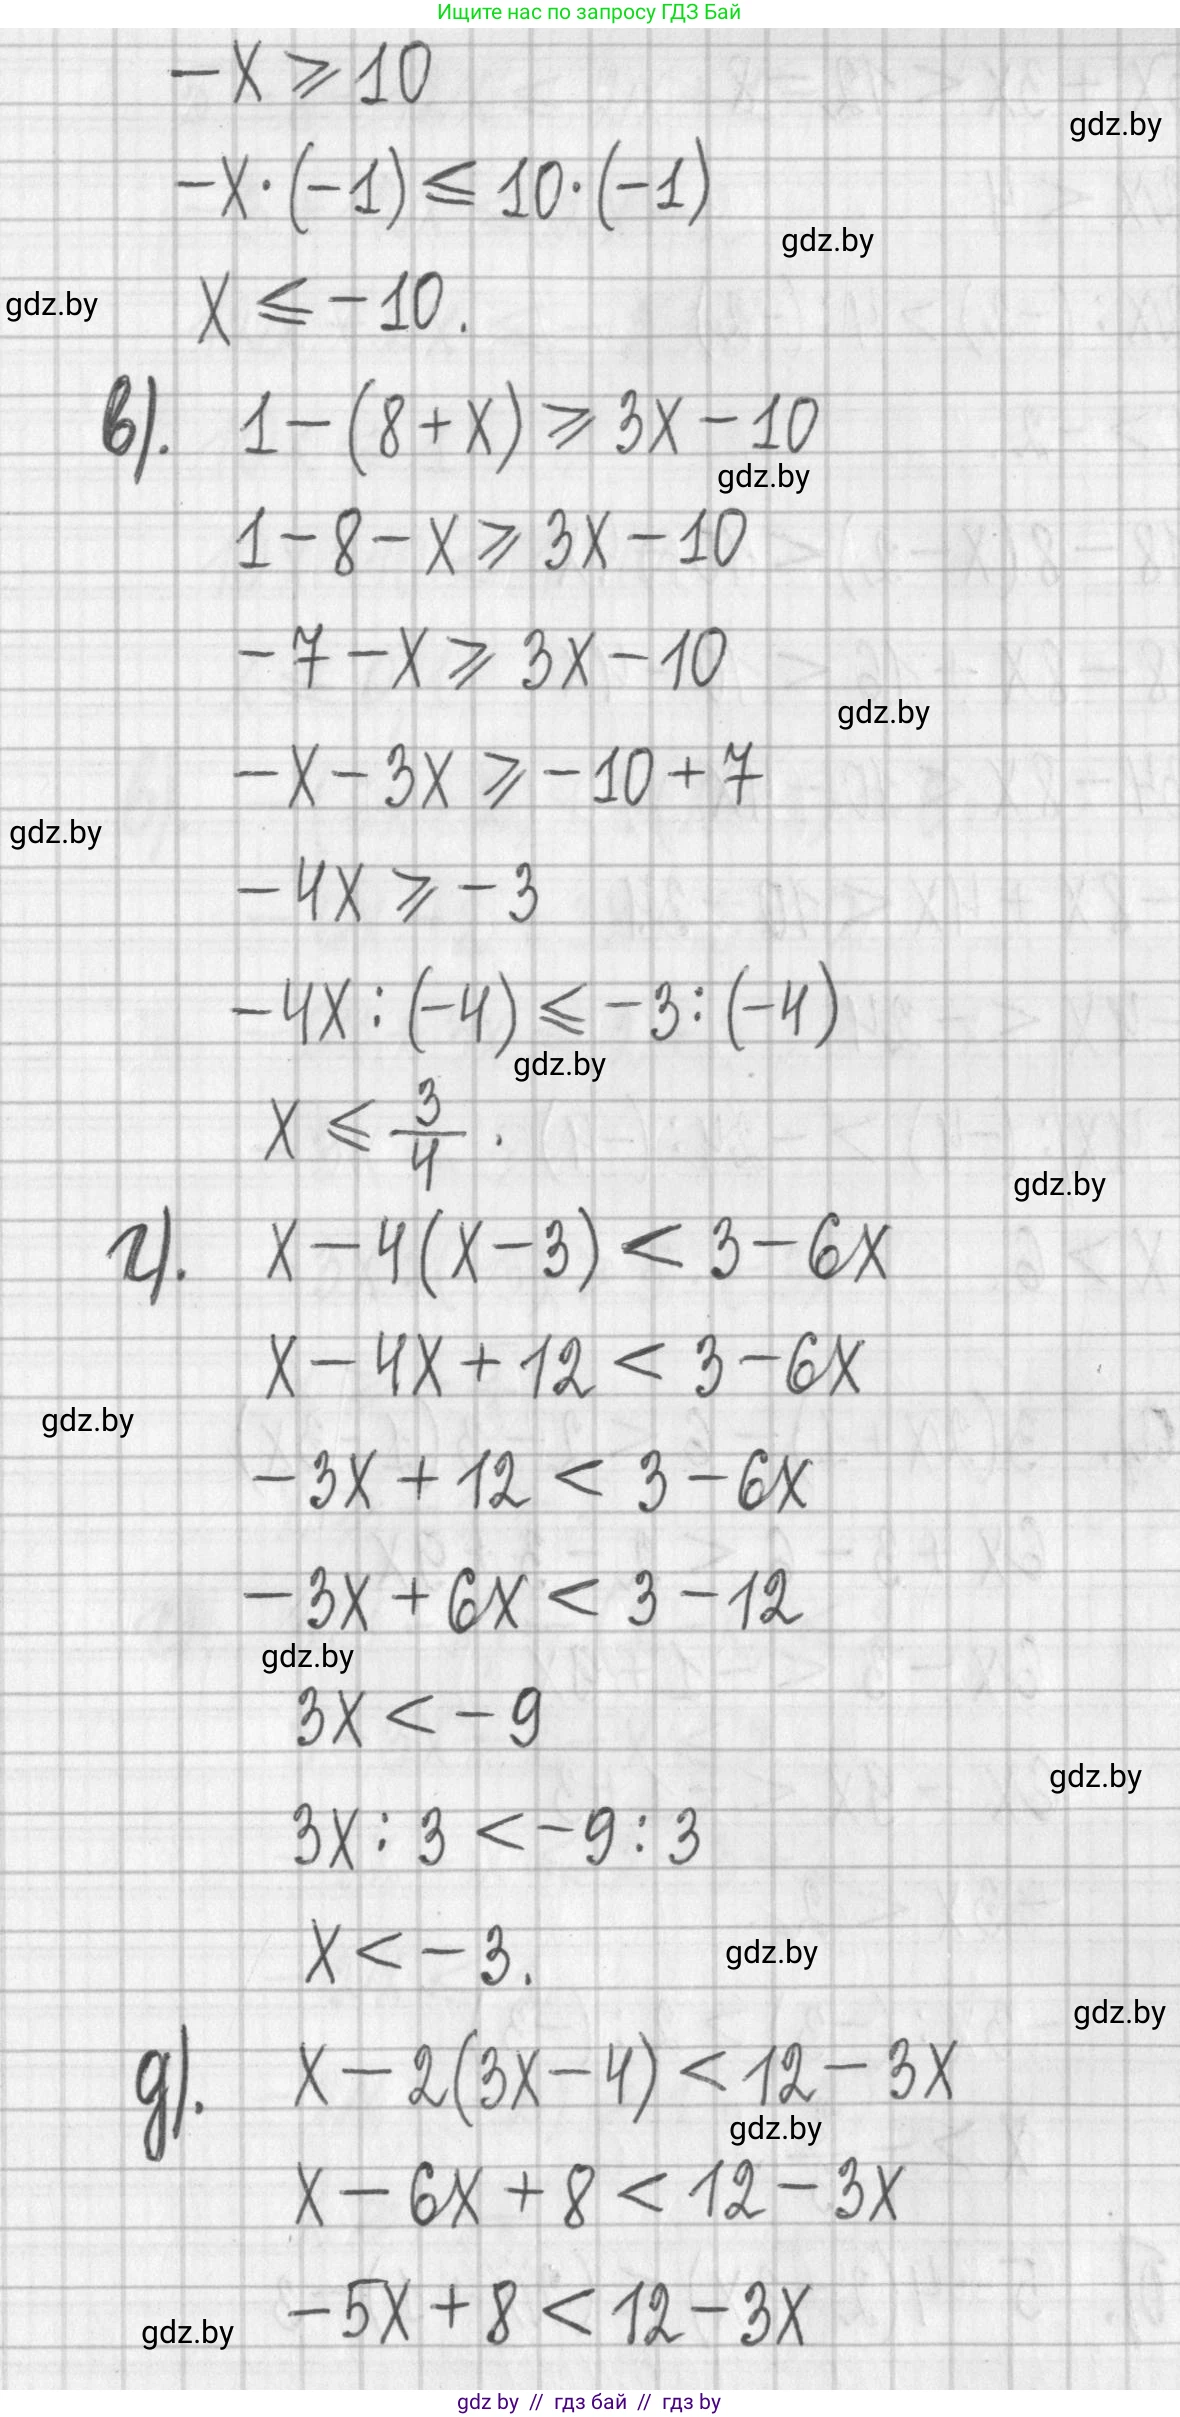 Ищите нас по запросу ГДЗ Бай
-x ⩾ 10
gdz.by
-x·(-1) ⩽ 10·(-1)
gdz.by
x ⩽ -10.
gdz.by
в). 1-(8+x) ⩾ 3x-10
gdz.by
1-8-x ⩾ 3x-10
-7-x ⩾ 3x-10
gdz.by
-x-3x ⩾ -10+7
gdz.by
-4x ⩾ -3
-4x:(-4) ⩽ -3:(-4)
gdz.by
x ⩽ 3/4.
gdz.by
г). x-4(x-3) < 3-6x
x-4x+12 < 3-6x
gdz.by
-3x+12 < 3-6x
-3x+6x < 3-12
gdz.by
3x < -9
gdz.by
3x:3 < -9:3
x < -3.
gdz.by
gdz.by
д). x-2(3x-4) < 12-3x
gdz.by
x-6x+8 < 12-3x
-5x+8 < 12-3x
gdz.by
gdz by // гдз бай // гдз by